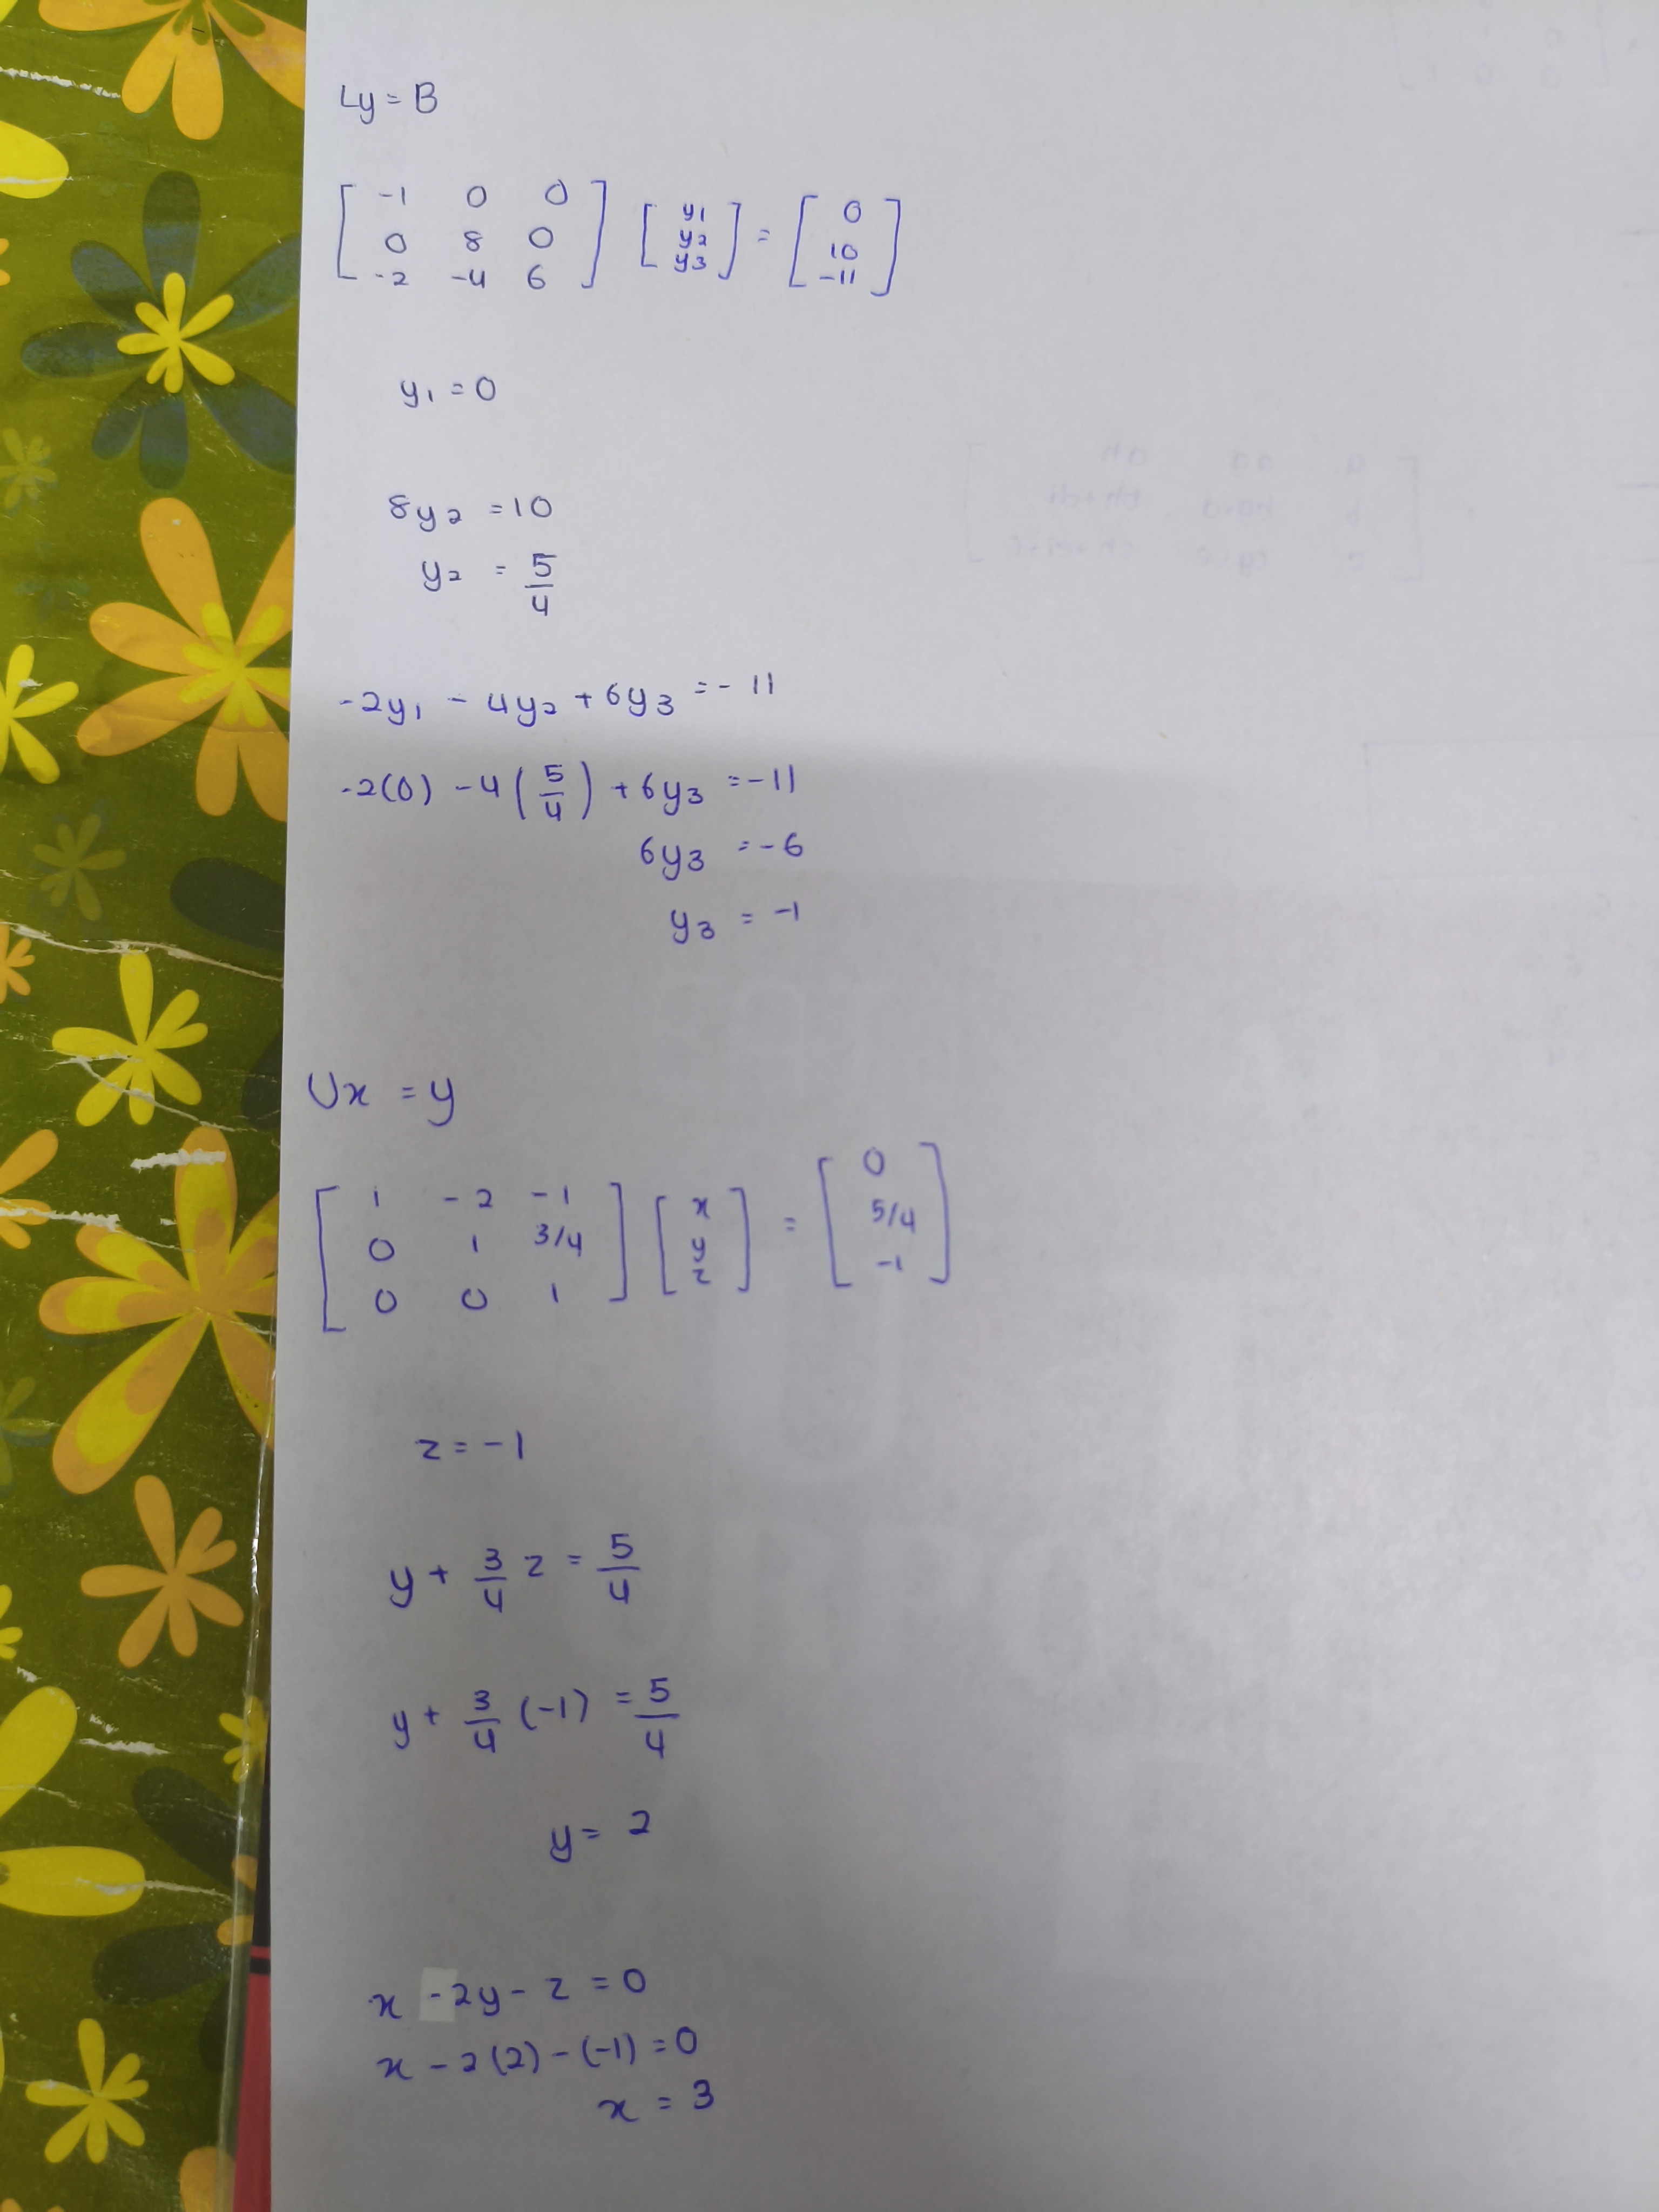 Ly = B
[ -1 0 0
0 8 0
-2 -4 6 ] [ y1
y2
y3 ] = [ 0
10
-11 ]
y1 = 0
8y2 = 10
y2 = 5/4
-2y1 - 4y2 + 6y3 = -11
-2(0) - 4(5/4) + 6y3 = -11
6y3 = -6
y3 = -1
Ux = y
[ 1 -2 -1
0 1 3/4
0 0 1 ] [ x
y
z ] = [ 0
5/4
-1 ]
z = -1
y + 3/4 z = 5/4
y + 3/4 (-1) = 5/4
y = 2
x - 2y - z = 0
x - 2(2) - (-1) = 0
x = 3